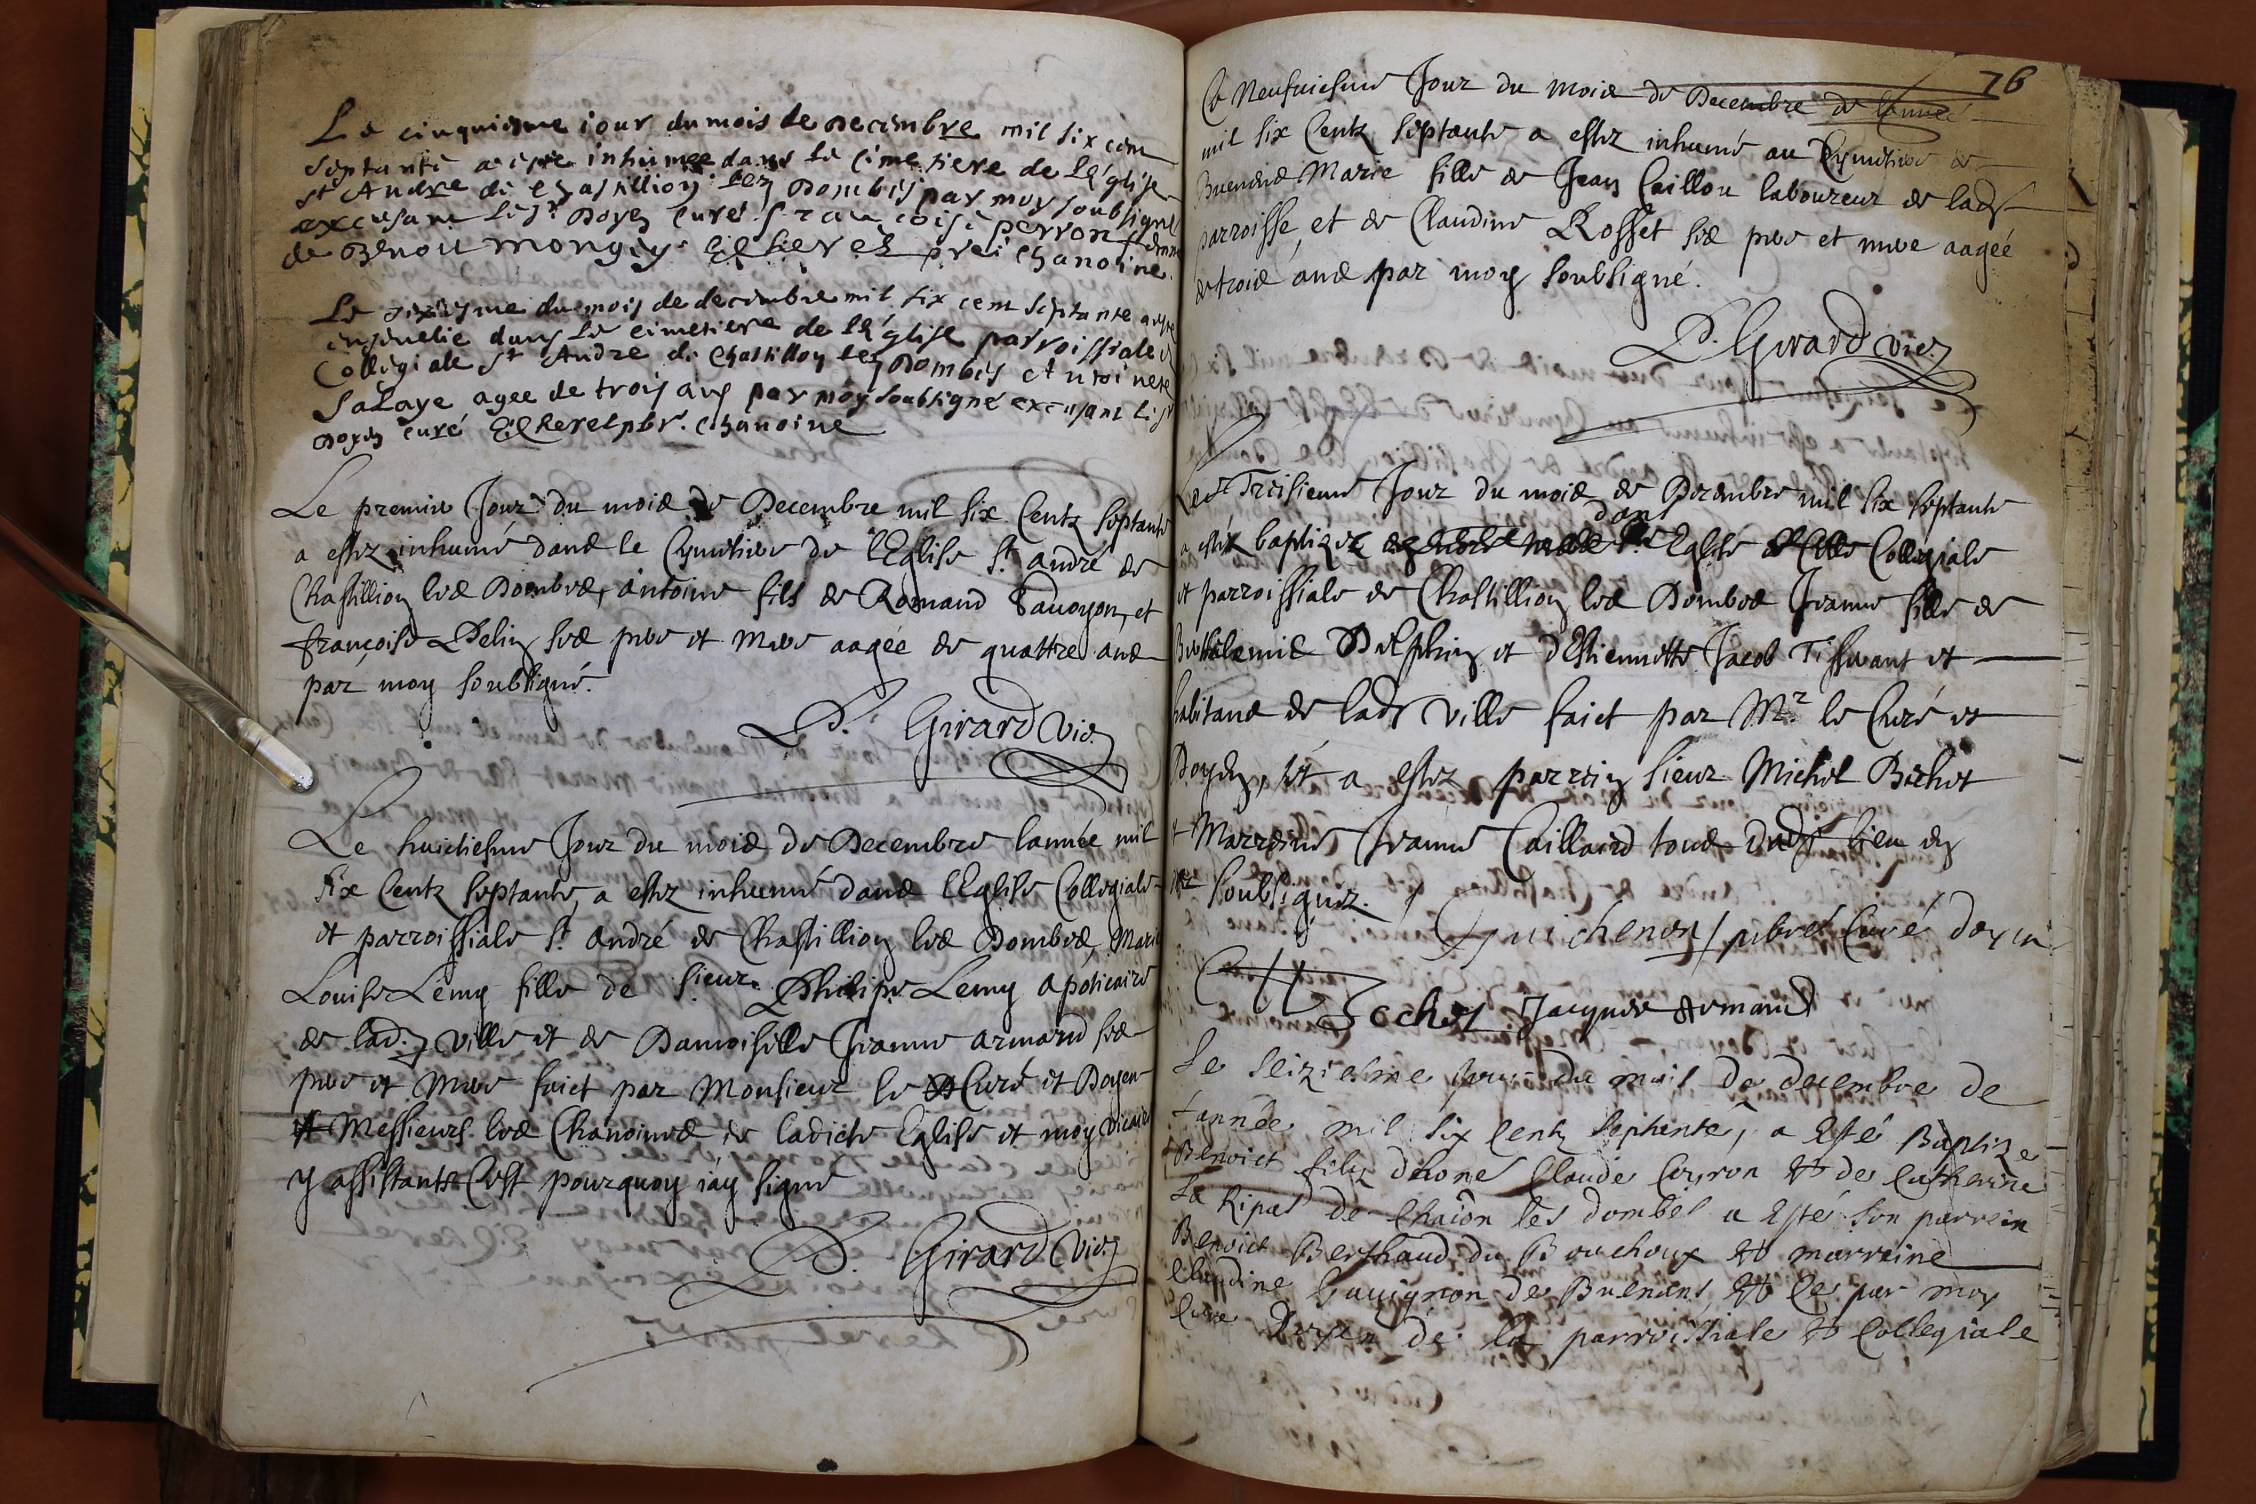 Le cinquiesme iour du mois de decembre mil six cent
septante a este inhumée dans le cimetiere de l'église
st Andre de chastillion les Dombes par moy soubsigné
excusant le sr Doyen curé francoise perron femme
de Benoit mongey EChevel prei chanoine.
Le sixiesme du mois de decembre mil six cent septante a esté
ensevelie dans le cimetiere de l'église parroissiale et
Collégiale st Andre de chastillon les Dombes Antoinete
Salaye agee de trois ans par moy soubsigné excusant le sr
Doyen curé EChevel pbr. chanoine
Le premier Jour du mois de Decembre mil six Centz septante
a estez inhumé dans le Cymetiere de l'Eglise st. andré de
Chastillion les Dombes, antoine fils de Romand Savoyon, et
françoise Pelin ses pere et mere aagée de quattre ans
par moy soubsigné.
P. Girard vic.
Le huictiesme Jour du mois de Decembre l'année mil
six Centz septante, a estez inhumé dans l'Eglise Collegiale
et parroissiale st. andré de Chastillion les Dombes, Marie
Louise Lemy fille de sieur Philipe Lemy apoticaire
de lad. ville et de Damoiselle Jeanne armand ses
pere et mere faict par Monsieur le Curé et Doyen
Messieurs les Chanoines de ladicte Eglise et moy vicaire
y assistants C'est pourquoy i'ay signé
P. Girard vic.
76
Le Neufuiesme Jour du mois de Decembre de l'année
mil six Centz septante a estez inhumé au Cymetiere de
Buenens Marie fille de Jean Caillou laboureur de lad.
parroisse, et de Claudine Rosset ses pere et mere aagée
de trois ans par moy soubsigné.
P. Girard vic.
Le Treisieme Jour du mois de Decembre mil six septante
dans
a estez baptizez Eglise Collegiale
et parroissiale de Chastillion les Dombes Jeanne fille de
Barthelemie Delphin et d'Estiennette Jacob Tisserant et
habitans de lad. ville faict par Mr. le Curé et
Doyen, et a estez parrein sieur Michel Bichet
et Marreine Jeanne Caillard tous dud. lieu
soubsignez.
Guichenon / pbre Curé doyen
Jacques Armand
Le seiziesme jour du mois de decembre de
l'année mil six centz septente, a Esté Baptize
Benoict filz d'hone Claude Coyron & de Catherine
La Ripas de Chaion les dombes a Esté son parrein
Benoict Berthaud du Bouchoux & marreine
Claudine Savignon de Buenens, & Ce par moy
Cure Doyen de la parroissiale & Collegiale